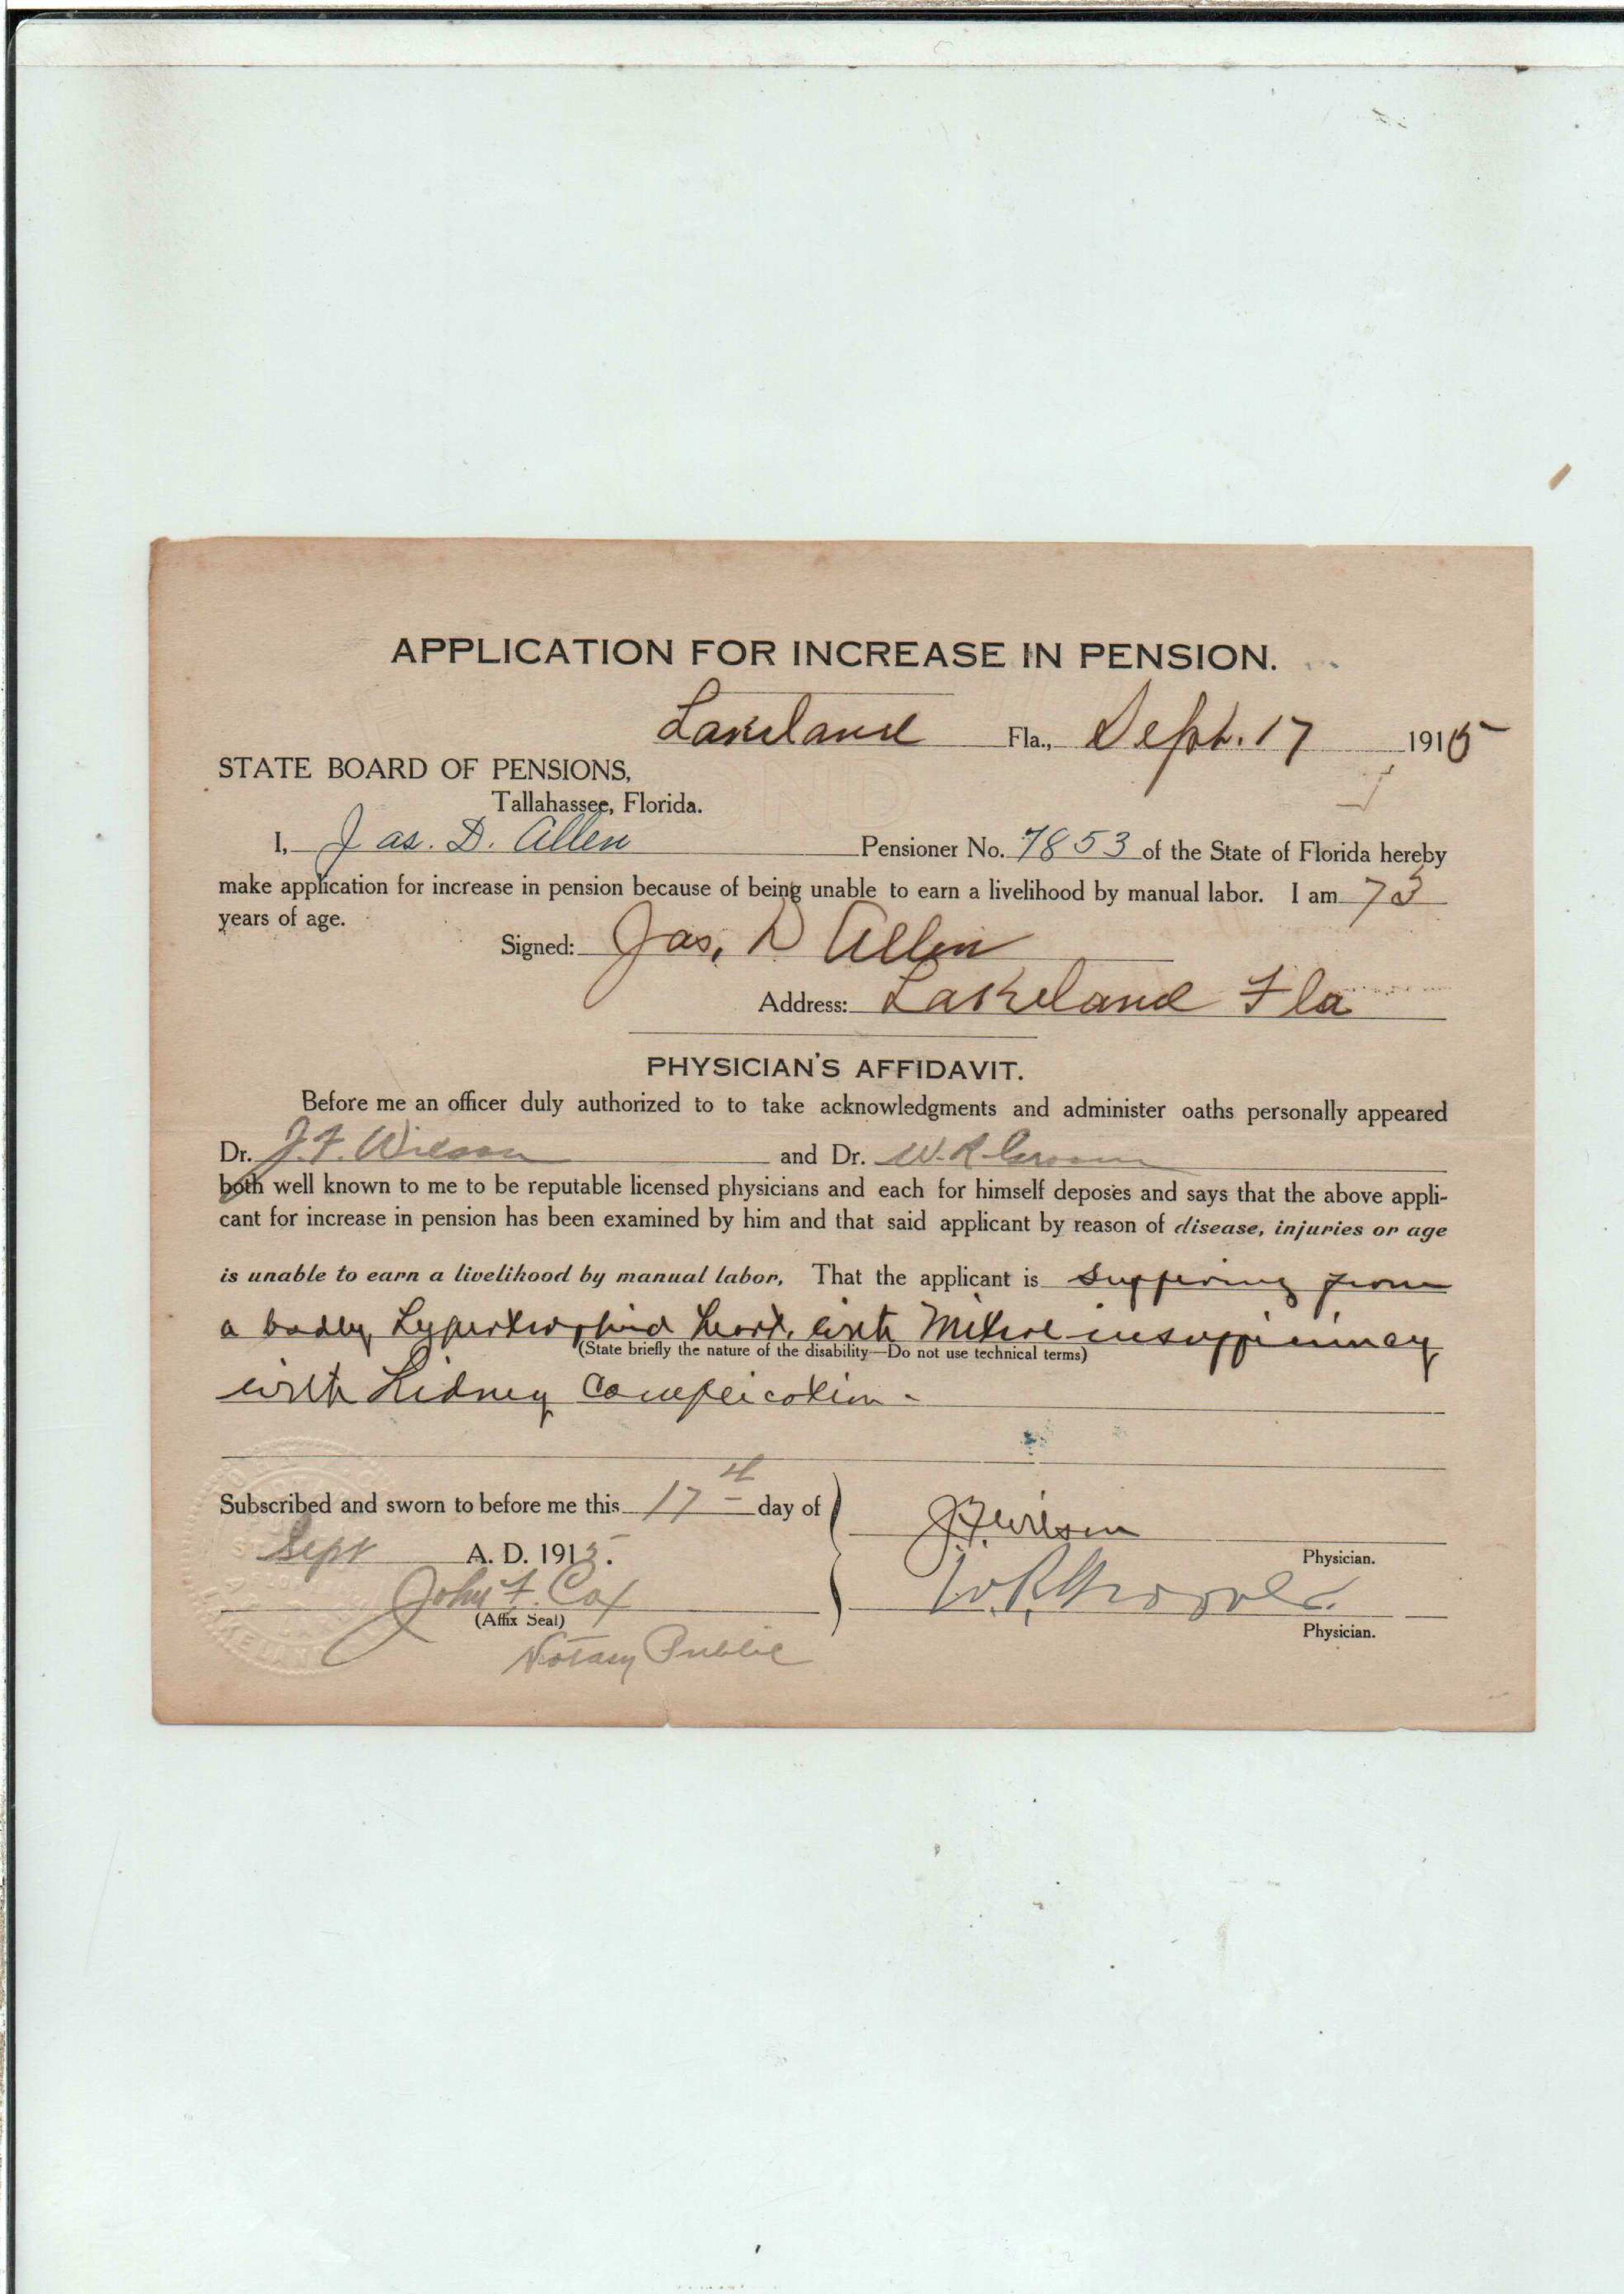 APPLICATION FOR INCREASE IN PENSION.
Lakeland Fla., Sept. 17 1915
STATE BOARD OF PENSIONS,
Tallahassee, Florida.
I, Jas. D. Allen Pensioner No. 7853 of the State of Florida hereby
make application for increase in pension because of being unable to earn a livelihood by manual labor. I am 73
years of age.
Signed: Jas. D Allen
Address: Lakeland Fla
PHYSICIAN'S AFFIDAVIT.
Before me an officer duly authorized to to take acknowledgments and administer oaths personally appeared
Dr. J. F. Wilson and Dr. W. R.
both well known to me to be reputable licensed physicians and each for himself deposes and says that the above appli-
cant for increase in pension has been examined by him and that said applicant by reason of disease, injuries or age
is unable to earn a livelihood by manual labor. That the applicant is suffering from
a badly Hypertrophied heart, with Mitral insufficiency
(State briefly the nature of the disability—Do not use technical terms)
with Kidney Complication -
Subscribed and sworn to before me this 17th day of
Sept A. D. 1915.
J F Wilson
Physician.
John F. Cox
(Affix Seal)
Notary Public
W. R. Groover
Physician.